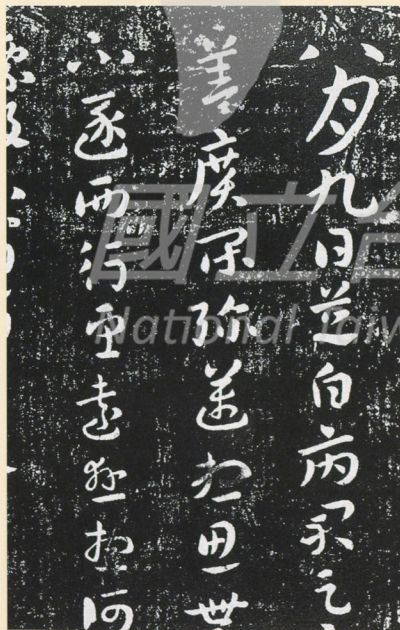 八月九日芝白府君足
善廣閒彌邁想思無
不遂西行望遠懸想何
漂沒不當行
國立台
National Taiw